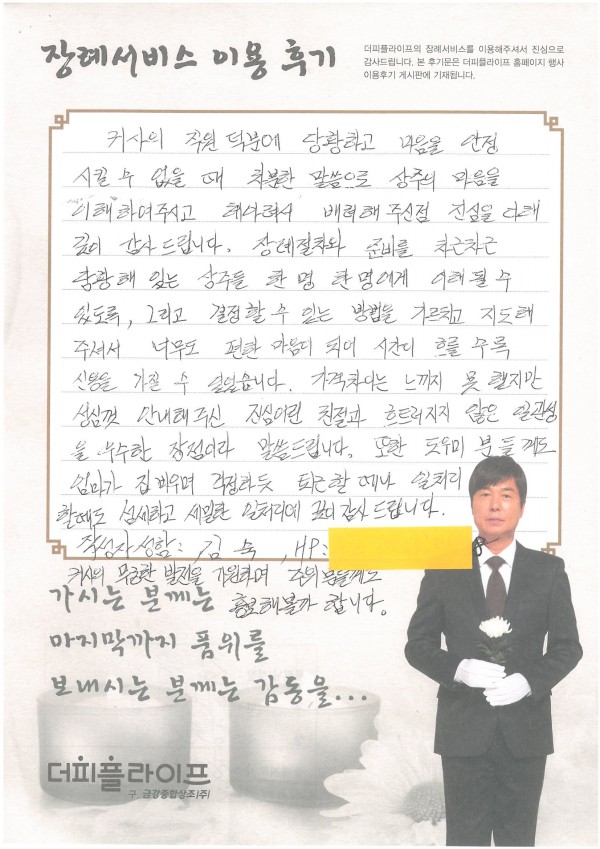 장례서비스 이용 후기
더피플라이프의 장례서비스를 이용해주셔서 진심으로
감사드립니다. 본 후기문은 더피플라이프 홈페이지 행사
이용후기 게시판에 기재됩니다.
귀사의 직원 덕분에 당황하고 마음을 안정
시킬 수 없을 때 차분한 말씀으로 상주의 마음을
이해하여주시고 헤아려서 배려해 주신점 진심을 다해
깊이 감사드립니다. 장례절차와 준비를 차근차근
당황해 있는 상주들 한 명 한 명에게 이해될 수
있도록, 그리고 결정할 수 있는 방법을 가르치고 지도해
주셔서 너무도 편한 마음이 되어 시간이 흐를수록
신뢰을 가질 수 있었습니다. 가격차이는 느끼지 못했지만
성심껏 안내해주신 진심어린 친절과 흐트러지지 않은 일관성
을 우수한 장점이라 말씀드립니다. 또한 도우미 분들께도
엄마가 집 비우며 걱정하듯 퇴근할 때나 일처리
할때도 섬세하고 세밀한 일처리에 깊이 감사드립니다.
작성자성함: 김 숙, HP:
귀사의 무궁한 발전을 기원하며 주위 분들께도
홍보해볼까 합니다.
가시는 분께는
마지막까지 품위를
보내시는 분께는 감동을...
더피플라이프
구. 금강종합상조(주)